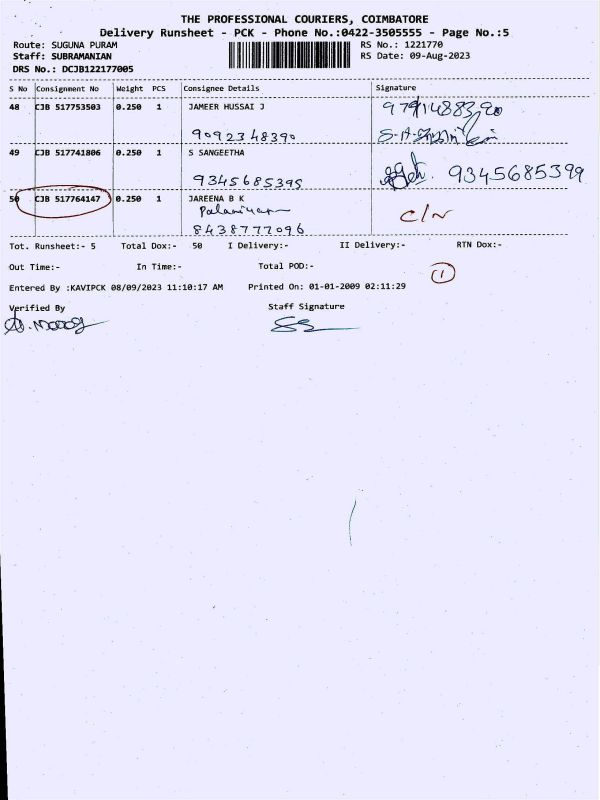 THE PROFESSIONAL COURIERS, COIMBATORE
Delivery Runsheet - PCK - Phone No.:0422-3505555 - Page No.:5
Route: SUGUNA PURAM RS No.: 1221770
Staff: SUBRAMANIAN RS Date: 09-Aug-2023
DRS No.: DCJB122177005
S No Consignment No Weight PCS Consignee Details Signature
48 CJB 517753503 0.250 1 JAMEER HUSSAI J
9092348390
49 CJB 517741806 0.250 1 S SANGEETHA
9345685395 9345685399
50 CJB 517764147 0.250 1 JAREENA B K
C/N
8438777096
Tot. Runsheet:- 5 Total Dox:- 50 I Delivery:- II Delivery:- RTN Dox:-
Out Time:- In Time:- Total POD:-
1
Entered By :KAVIPCK 08/09/2023 11:10:17 AM Printed On: 01-01-2009 02:11:29
Verified By Staff Signature